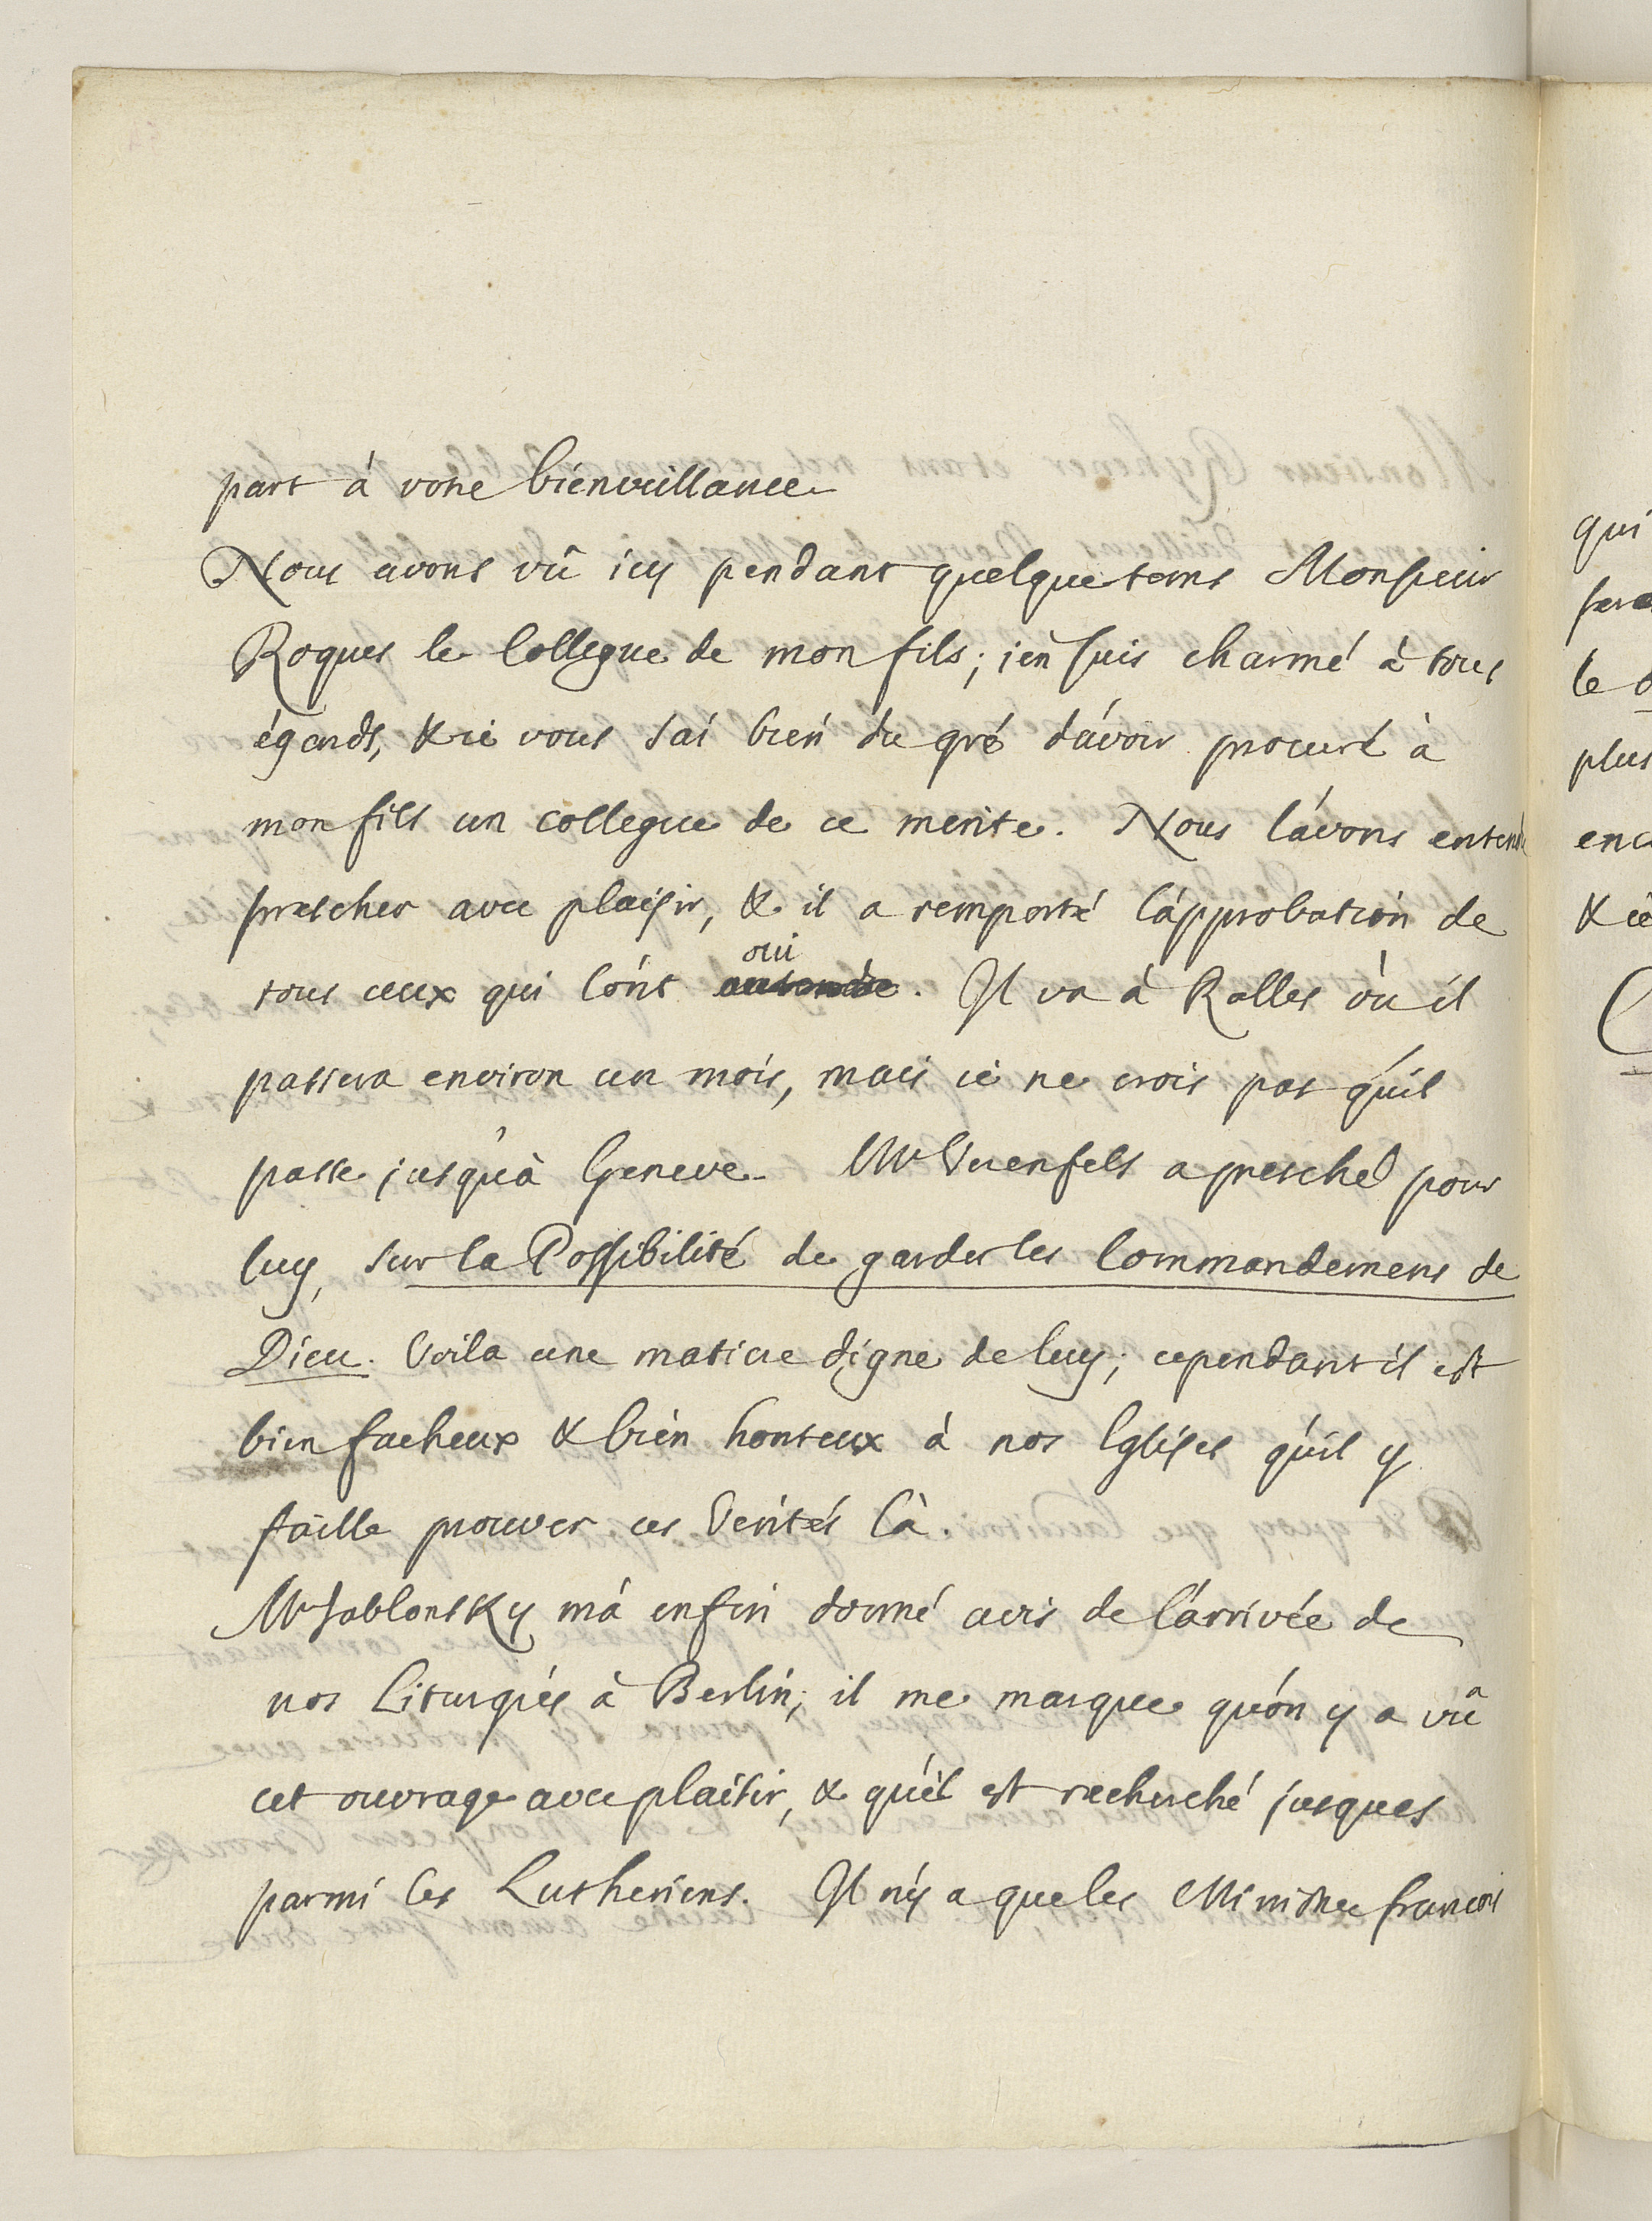 part à votre bienveillance
Nous avons vû icy pendant quelque tems Monsieur
Roques le Collegue de mon fils; i'en suis charmé à tous
égards, & ie vous sai bien du gré d'avoir procuré à
mon fils un collegue de ce merite. Nous l'avons entendu
prescher avec plaisir, & il a remporté l'approbation de
oui
tous ceux qui l'ont entendu. Il va à Rolles où il
passera environ un mois, mais ie ne crois pas qu'il
passe jusqu'à Geneve. Mr Verenfels a presché pour
luy, sur la Possibilité de garder les Commandemens de
Dieu. Voila une matiere digne de luy; cependant il est
bien facheux & bien honteux à nos Eglises qu'il y
faille prouver ces Verités là.
Mr Jablonsky m'a enfin donné avis de l'arrivée de
nos Liturgies à Berlin; il me marque qu'on y a vû
cet ouvrage avec plaisir, & qu'il est recherché jusques
parmi les Lutheriens. Il n'y a que les Ministres francois
qui
le
plus
enc
& ie